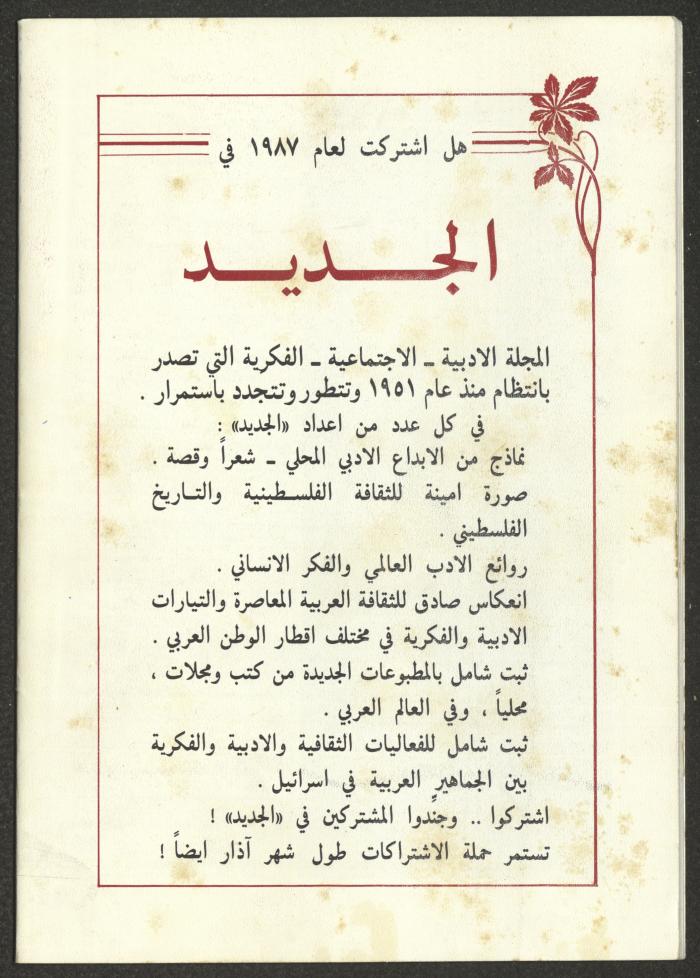 هل اشتركت لعام ١٩٨٧ في
الجديد
المجلة الادبية ـ الاجتماعية ـ الفكرية التي تصدر
بانتظام منذ عام ١٩٥١ وتتطور وتتجدد باستمرار .
في كل عدد من اعداد «الجديد» :
نماذج من الابداع الادبي المحلي ـ شعراً وقصة .
صورة امينة للثقافة الفلسطينية والتاريخ
الفلسطيني .
روائع الادب العالمي والفكر الانساني .
انعكاس صادق للثقافة العربية المعاصرة والتيارات
الادبية والفكرية في مختلف اقطار الوطن العربي .
ثبت شامل بالمطبوعات الجديدة من كتب ومجلات ،
محلياً ، وفي العالم العربي .
ثبت شامل للفعاليات الثقافية والادبية والفكرية
بين الجماهير العربية في اسرائيل .
اشتركوا .. وجنِّدوا المشتركين في «الجديد» !
تستمر حملة الاشتراكات طول شهر آذار ايضاً !